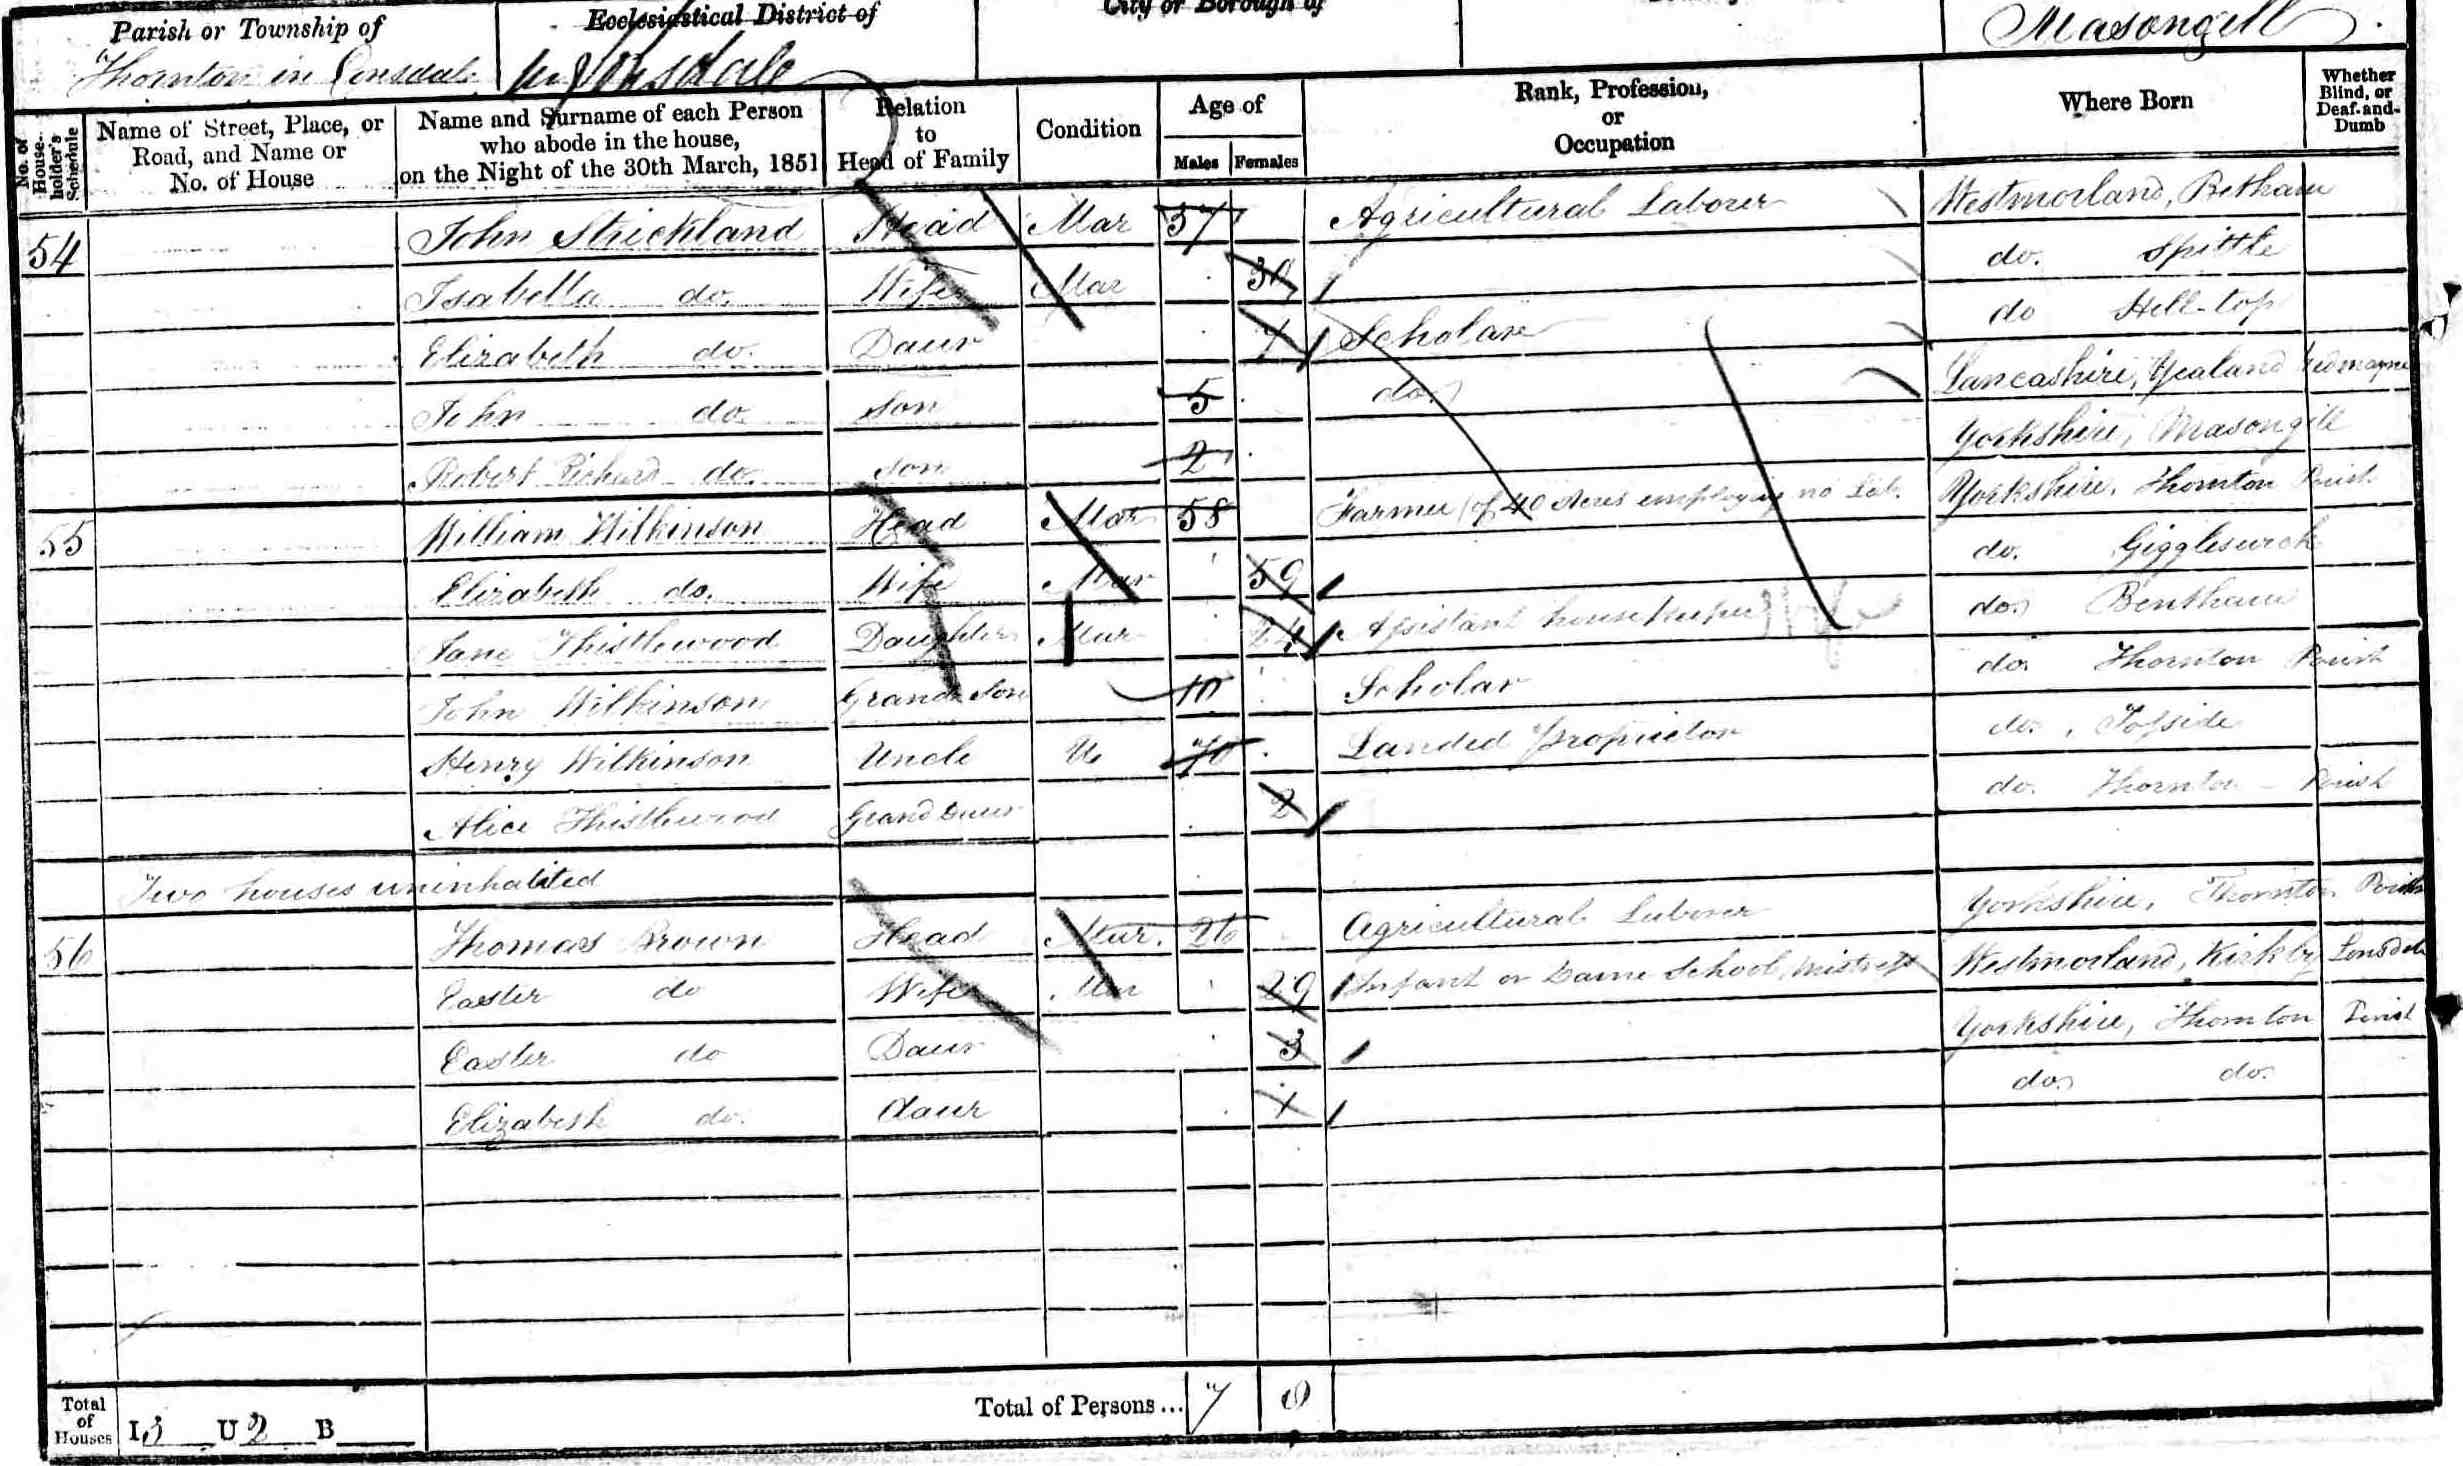 Parish or Township of
Ecclesiastical District of
City or Borough of
Thornton in Lonsdale
Lonsdale
Masongill
No. of House-holder's Schedule
Name of Street, Place, or Road, and Name or No. of House
Name and Surname of each Person who abode in the house, on the Night of the 30th March, 1851
Relation to Head of Family
Condition
Age of
Males Females
Rank, Profession, or Occupation
Where Born
Whether Blind, or Deaf-and-Dumb
54 John Strickland Head Mar 37 Agricultural Laborer Westmorland, Betham
Isabella do. Wife Mar 30 do. Spittle
Elizabeth do. Daur 7 Scholar do Hill-top
John do. Son 5 do. Lancashire, Yealand Redmayne
Robert Richard do. Son 2 Yorkshire, Masongill
55 William Wilkinson Head Mar 58 Farmer (of 40 Acres employing no Lab. Yorkshire, Thornton Parish
Elizabeth do. Wife Mar 59 do. Giggleswick
Jane Thistlewood Daughter Mar 24 Assistant housekeeper do. Bentham
John Wilkinson Grand Son 10 Scholar do. Thornton Parish
Henry Wilkinson Uncle U 70 Landed Proprietor do.
Alice Thistlewood Grand Daur 2 do. Thornton Parish
Two houses uninhabited
56 Thomas Brown Head Mar. 26 Agricultural Laborer Yorkshire, Thornton Parish
Easter do Wife Mar 29 Infant or Dame School Mistress Westmorland, Kirkby Lonsdale
Easter do Daur 3 Yorkshire, Thornton Parish
Elizabeth do. daur 1 do. do.
Total of Houses I 3 U 2 B
Total of Persons... 7 8